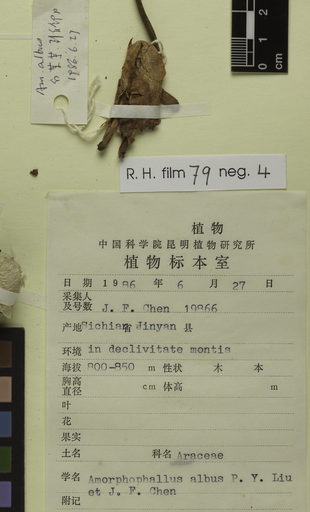 Am. albus
1986.6.27
0 1 2
cm
R. H. film 79 neg. 4
植物
中国科学院昆明植物研究所
植物标本室
日期 1986 年 6 月 27 日
采集人
及号数 J. F. Chen 19866
产地 Sichian 省 Jinyan 县
环境 in declivitate montis
海拔 800-850 m 性状 木 本
胸高
直径 cm 体高 m
叶
花
果实
土名 科名 Araceae
学名 Amorphophallus albus P. Y. Liu
et J. F. Chen
附记